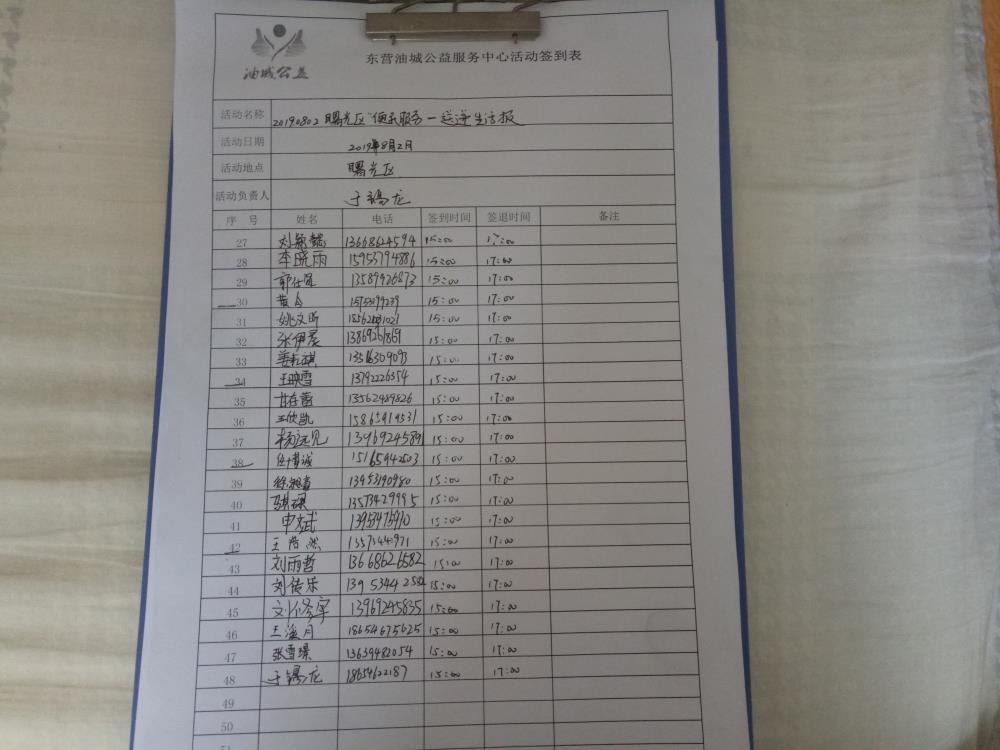 油城公益
东营油城公益服务中心活动签到表
活动名称 20190802曙光区"便民服务一送递生活报
活动日期 2019年8月2日
活动地点 曙光区
活动负责人 于锡龙
序 号 姓名 电话 签到时间 签退时间 备注
27 13668624594 15:00 17:00
28 李晓雨 15953794886 15:00 17:00
29 13589926873 15:00 17:00
30 15:00 17:00
31 姚文昕 15:00 17:00
32 张伊晨 13869261869 15:00 17:00
33 13516309093 15:00 17:00
34 王映雪 13792226354 15:00 17:00
35 13562989826 15:00 17:00
36 王欣凯 15865919531 15:00 17:00
37 杨远见 13969245891 15:00 17:00
38 15165942503 15:00 17:00
39 13953190980 15:00 17:00
40 13573429995 15:00 17:00
41 申斌 15:00 17:00
42 王浩然 15:00 17:00
43 刘雨哲 13668626582 15:00 17:00
44 刘传乐 15:00 17:00
45 13969245835 15:00 17:00
46 王溪月 18654675625 15:00 17:00
47 张雪璟 13639482054 15:00 17:00
48 于锡龙 18654622187 15:00 17:00
49
50
51